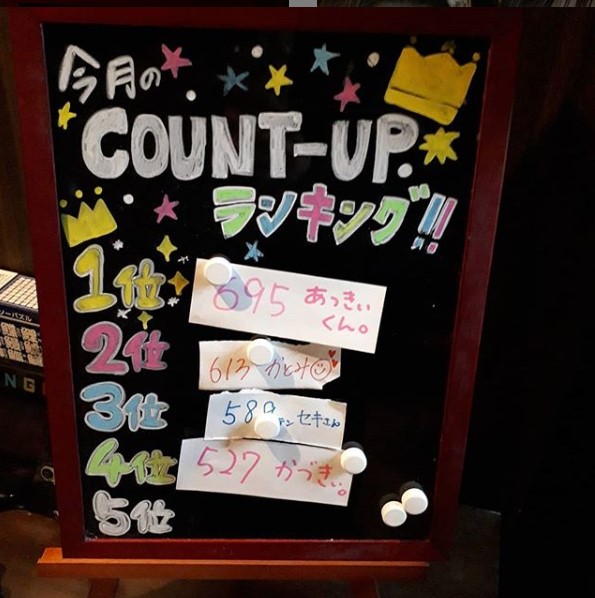 今月の
COUNT-UP.
ランキング!!
1位 695 あっきぃ
くん。
2位 613 かとみ
3位 589 セキさん
4位 527 かづきぃ。
5位